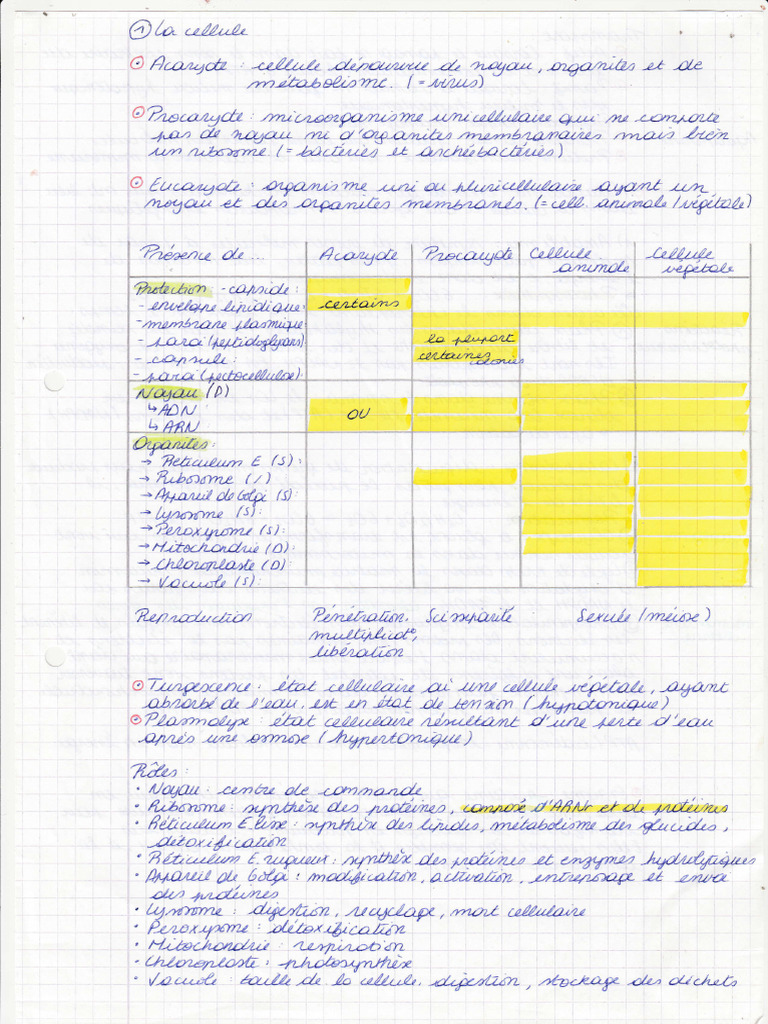 ① La cellule
Acaryote : cellule dépourvue de noyau, organites et de
métabolisme. (= virus)
Procaryote : microorganisme unicellulaire qui ne comporte
pas de noyau ni d'organites membranaires mais bien
un ribosome. (= bactéries et archéebactéries)
Eucaryote : organisme uni ou pluricellulaire ayant un
noyau et des organites membranés. (= cell. animale / végétale)
Présence de ... Acaryote Procaryote Cellule animale Cellule végétale
Protection - capside :
- enveloppe lipidique : certains
- membrane plasmique
- paroi (peptidoglycans) la plupart
- capsule : certaines colonies
- paroi (pectocellulose)
Noyau (D)
↳ ADN OU
↳ ARN
Organites :
→ Réticulum E (S) :
→ Ribosome (/)
→ Appareil de Golgi (S) :
→ Lysosome (S) :
→ Peroxysome (S) :
→ Mitochondrie (D) :
→ Chloroplaste (D) :
→ Vacuole (S) :
Reproduction Pénétration, Scissiparité Sexuée (méiose)
multiplicat°,
libération
Turgescence : état cellulaire où une cellule végétale, ayant
absorbé de l'eau, est en état de tension (hypotonique)
Plasmolyse : état cellulaire résultant d'une perte d'eau
après une osmose (hypertonique)
Rôles :
• Noyau : centre de commande
• Ribosome : synthèse des protéines, composé d'ARNr et de protéines
• Réticulum E. lisse : synthèse des lipides, métabolisme des glucides,
détoxification
• Réticulum E. rugueux : synthèse des protéines et enzymes hydrolytiques
• Appareil de Golgi : modification, activation, entreposage et envoi
des protéines
• Lysosome : digestion, recyclage, mort cellulaire
• Peroxysome : détoxification
• Mitochondrie : respiration
• Chloroplaste : photosynthèse
• Vacuole : taille de la cellule, digestion, stockage des déchets